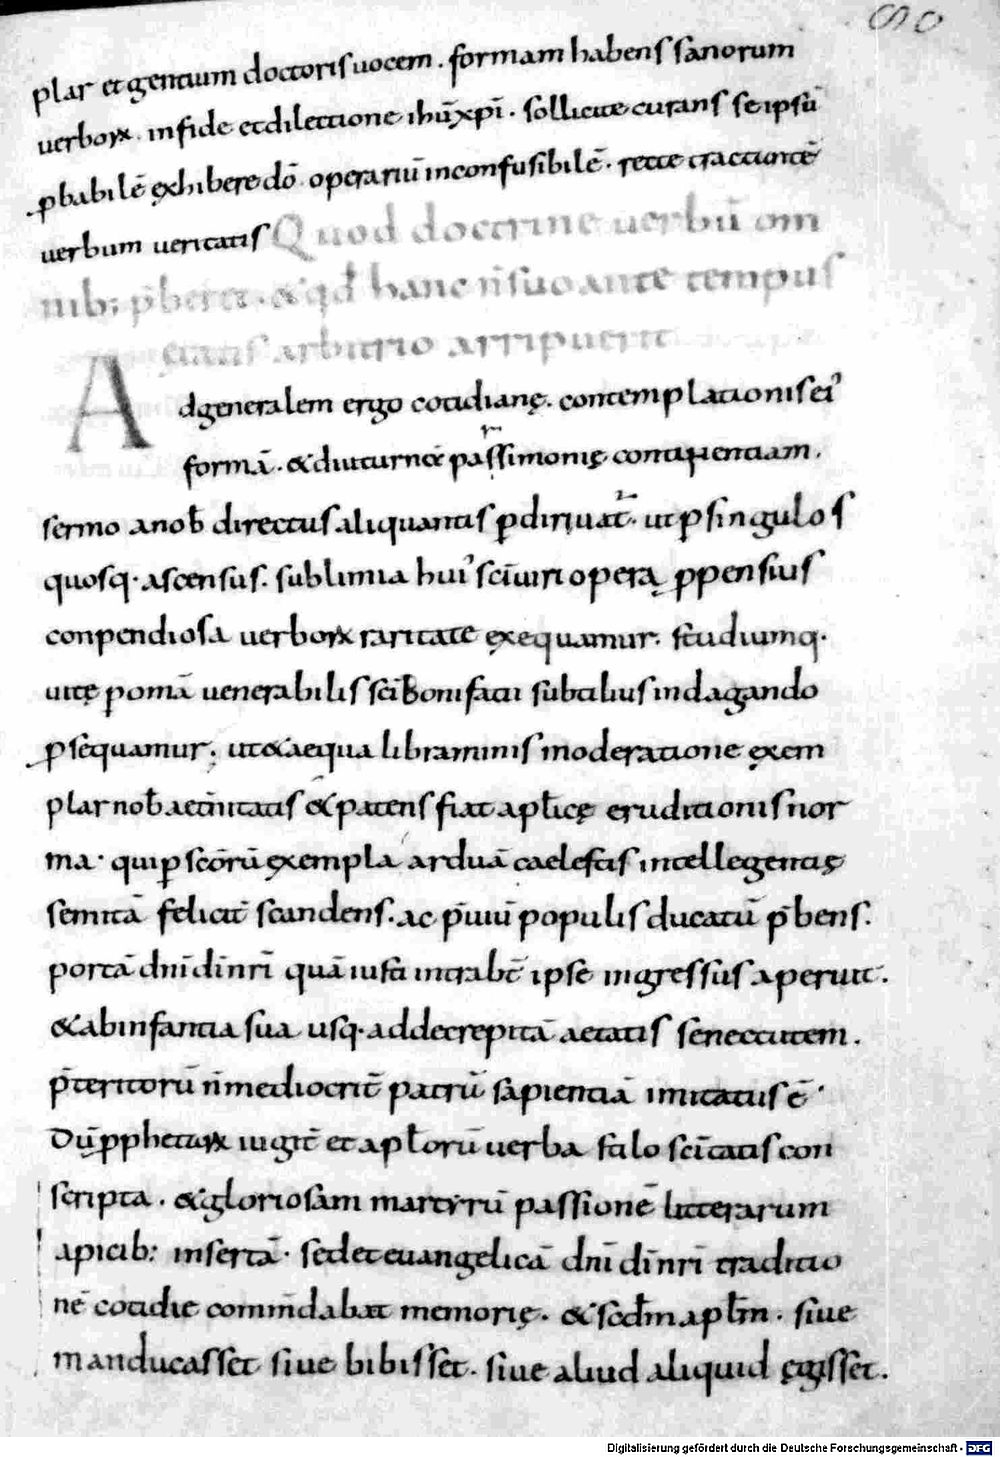 So
plar et gentium doctoris uocem . formam habens sanorum
uerboꝝ . in fide et dilectione ihū xpī . sollicite curans se ipsū
ꝓbabilē exhibere dō . operariū inconfusibilē . recte tractantē
uerbum ueritatis Quod doctrine uerbū om
nib; p̄beret . & qd̄ hanc n̄ suo ante tempus
ętatis arbitrio arripuerit
Ad generalem ergo cotidianę . contemplationis ei᾽
formā . & diuturnę parsimonię continentiam .
sermo a nob̄ directus aliquantis ꝑdiriuat . ut ꝑ singulos
quosq· ascensus . sublimia hui᾽ scī uiri opera ꝓpensius
conpendiosa uerboꝝ raritate exequamur . studiumq·
uitę ꝑ omā uenerabilis scī Bonifatii subtilius indagando
ꝓsequamur . ut & aequa libraminis moderatione exem
plar nob̄ aet̄nitatis & patens fiat apl̄icę eruditionis nor
ma · qui ꝑ scōrū exempla arduā caelestis intellegentię
semitā felicit̄ scandens . ac p̄uiū populis ducatū p̄bens .
portā dnī dī nrī quā iusti intrabt̄ ipse ingressus aperuit .
& ab infantia sua usq· ad decrepitā aetatis senectutem .
p̄teritorū n̄ mediocrit̄ patrū sapientiā imitatus ē ·
Dū ꝓphetaꝝ iugit̄ et apl̄orū uerba stilo scītatis con
scripta . & gloriosam martyrū passionē litterarum
apicib: insertā · sed et euangelicā dnī dī nrī traditio
nē cotidie comm̄dabat memorię . & scdm̄ aplm̄ . siue
manducasset siue bibisset . siue aliud aliquid egisset .
Digitalisierung gefördert durch die Deutsche Forschungsgemeinschaft - DFG